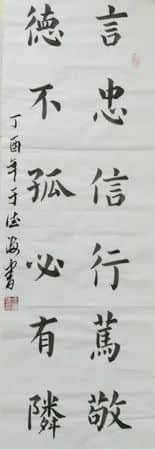 言忠信行篤敬
德不孤必有隣
丁酉年于海書